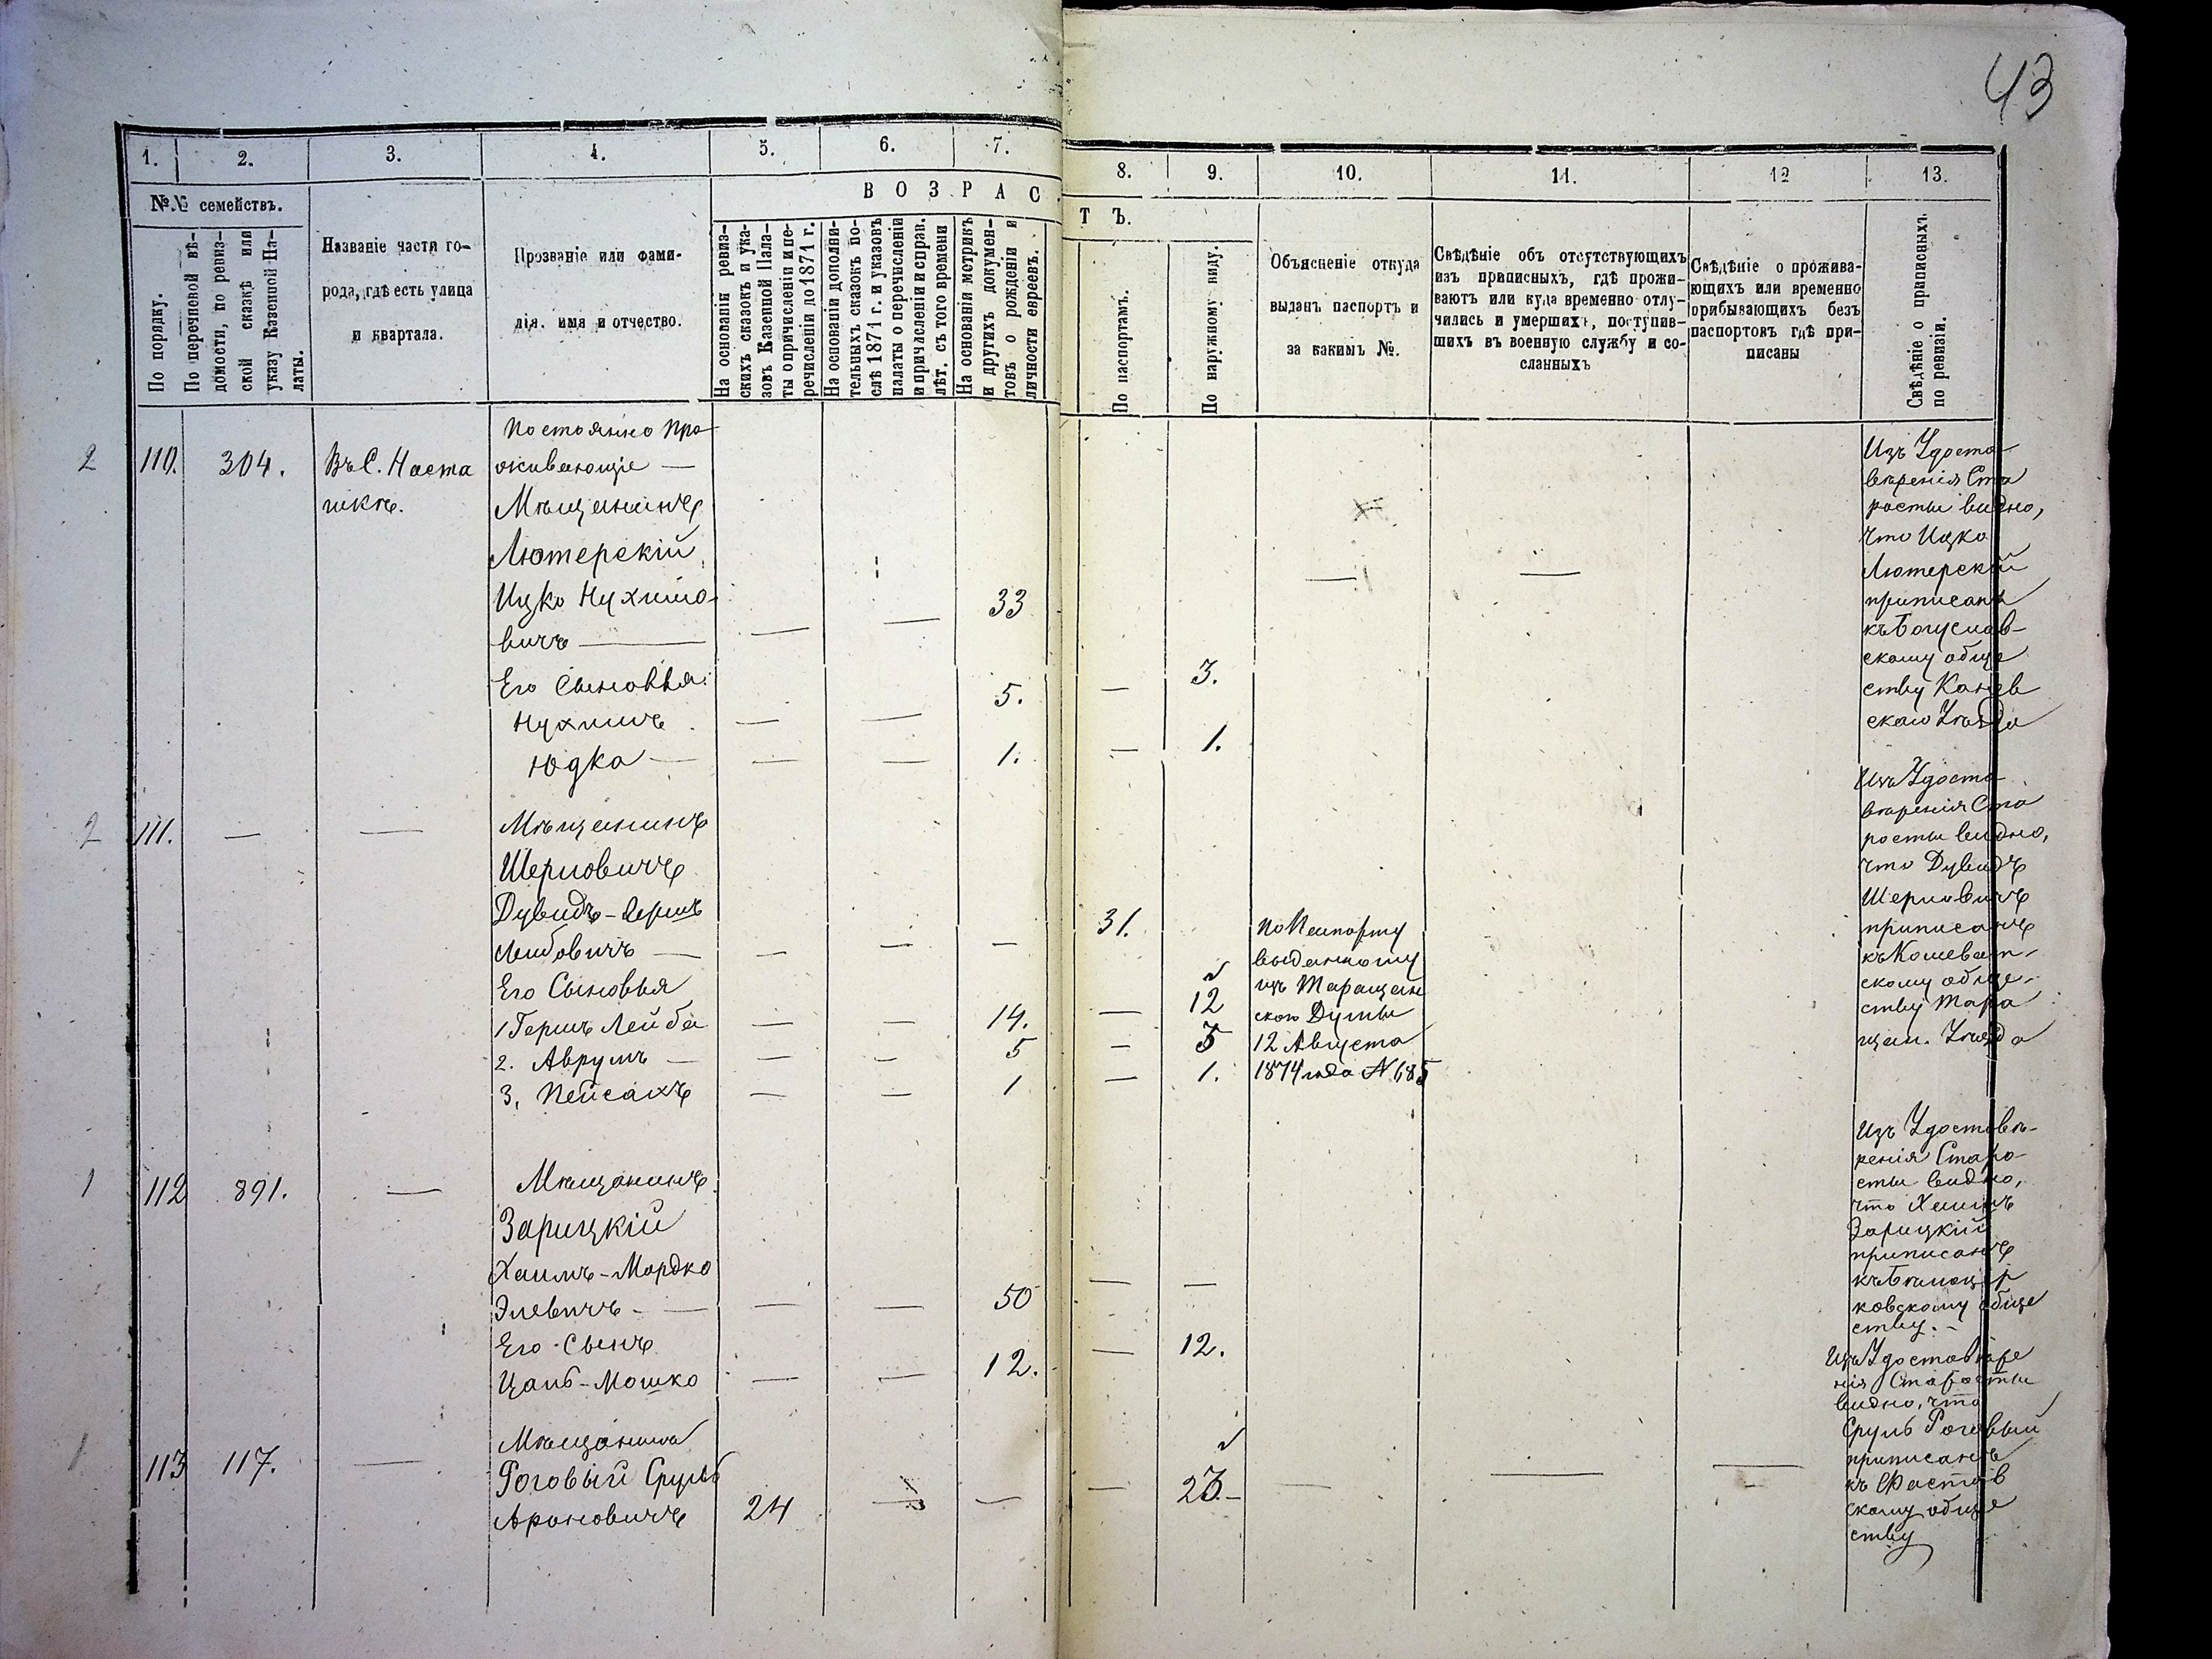 43
1. 2. 3. 4. 5. 6. 7. 8. 9. 10. 11. 12 13.
№№ семействъ.
По порядку.
По перечневой вѣ-
домости, по ревиз-
ской сказкѣ или
указу Казенной Па-
латы.
Названіе части го-
рода, гдѣ есть улица
и квартала.
Прозваніе или фами-
лія, имя и отчество.
ВОЗРАСТЪ.
На основаніи ревиз-
скихъ сказокъ и ука-
зовъ Казенной Пала-
ты о причисленіи и пе-
речисленіи до 1871 г.
На основаніи дополни-
тельныхъ сказокъ по-
слѣ 1871 г. и указовъ
палаты о перечисленіи
и причисленіи и справ.
лѣт. съ того времени
На основаніи метрикъ
и другихъ докумен-
товъ о рожденіи и
личности евреевъ.
По паспортамъ.
По наружному виду.
Объясненіе откуда
выданъ паспортъ и
за какимъ №.
Свѣдѣніе объ отсутствующихъ
изъ приписныхъ, гдѣ прожи-
ваютъ или куда временно отлу-
чились и умершихъ, поступив-
шихъ въ военную службу и со-
сланныхъ
Свѣдѣніе о прожива-
ющихъ или временно
прибывающихъ безъ
паспортовъ гдѣ при-
писаны
Свѣдѣніе о приписныхъ
по ревизіи.
2 110. 304. Въ С. Наста
шкѣ.
Постоянно про
живающіе —
Мѣщанинъ
Лютерскій
Ицко Нухимо-
вичъ — — — 33
Его Сыновья:
Нухимъ — — 5. — 3.
Юдка — — — 1. — 1.
Изъ Удосто
вѣренія Ста
росты видно,
что Ицко
Лютерскій
приписанъ
къ Богуслав-
скому обще
ству Канев
скаго Уѣзда
2 111. — —
Мѣщанинъ
Шерповичъ
Дувидъ-Герш
Лейбовичъ — — — — 31.
Его Сыновья
1 Гершъ Лейба — — 14. — 12
2. Аврумъ — — — 5 — 3
3, Пейсахъ — — 1 — 1.
По Паспорту
выданному
изъ Таращан
ской Думы
12 Августа
1874 года № 685
Изъ Удосто
вѣренія Ста
росты видно,
что Дувидъ
Шерповичъ
приписанъ
къ Кошеват-
скому обще-
ству Тара
щан. Уѣзда
1 112 891. —
Мѣщанинъ
Зарицкій
Хаимъ-Мордко
Элевичъ — — — 50 — —
Его Сынъ
Цаль-Мошко — — 12. — 12.
Изъ Удостовѣ-
ренія Старо-
сты видно,
что Хаимъ
Зарицкій
приписанъ
къ Бѣлоцер
ковскому обще
ству.
1 113 117. —
Мѣщанинъ
Роговый Сруль
Ароновичъ 24 — — — 23. — — —
Изъ Удостовѣре
нія Старосты
видно, что
Сруль Роговый
приписанъ
къ Фастов
скому обще
ству